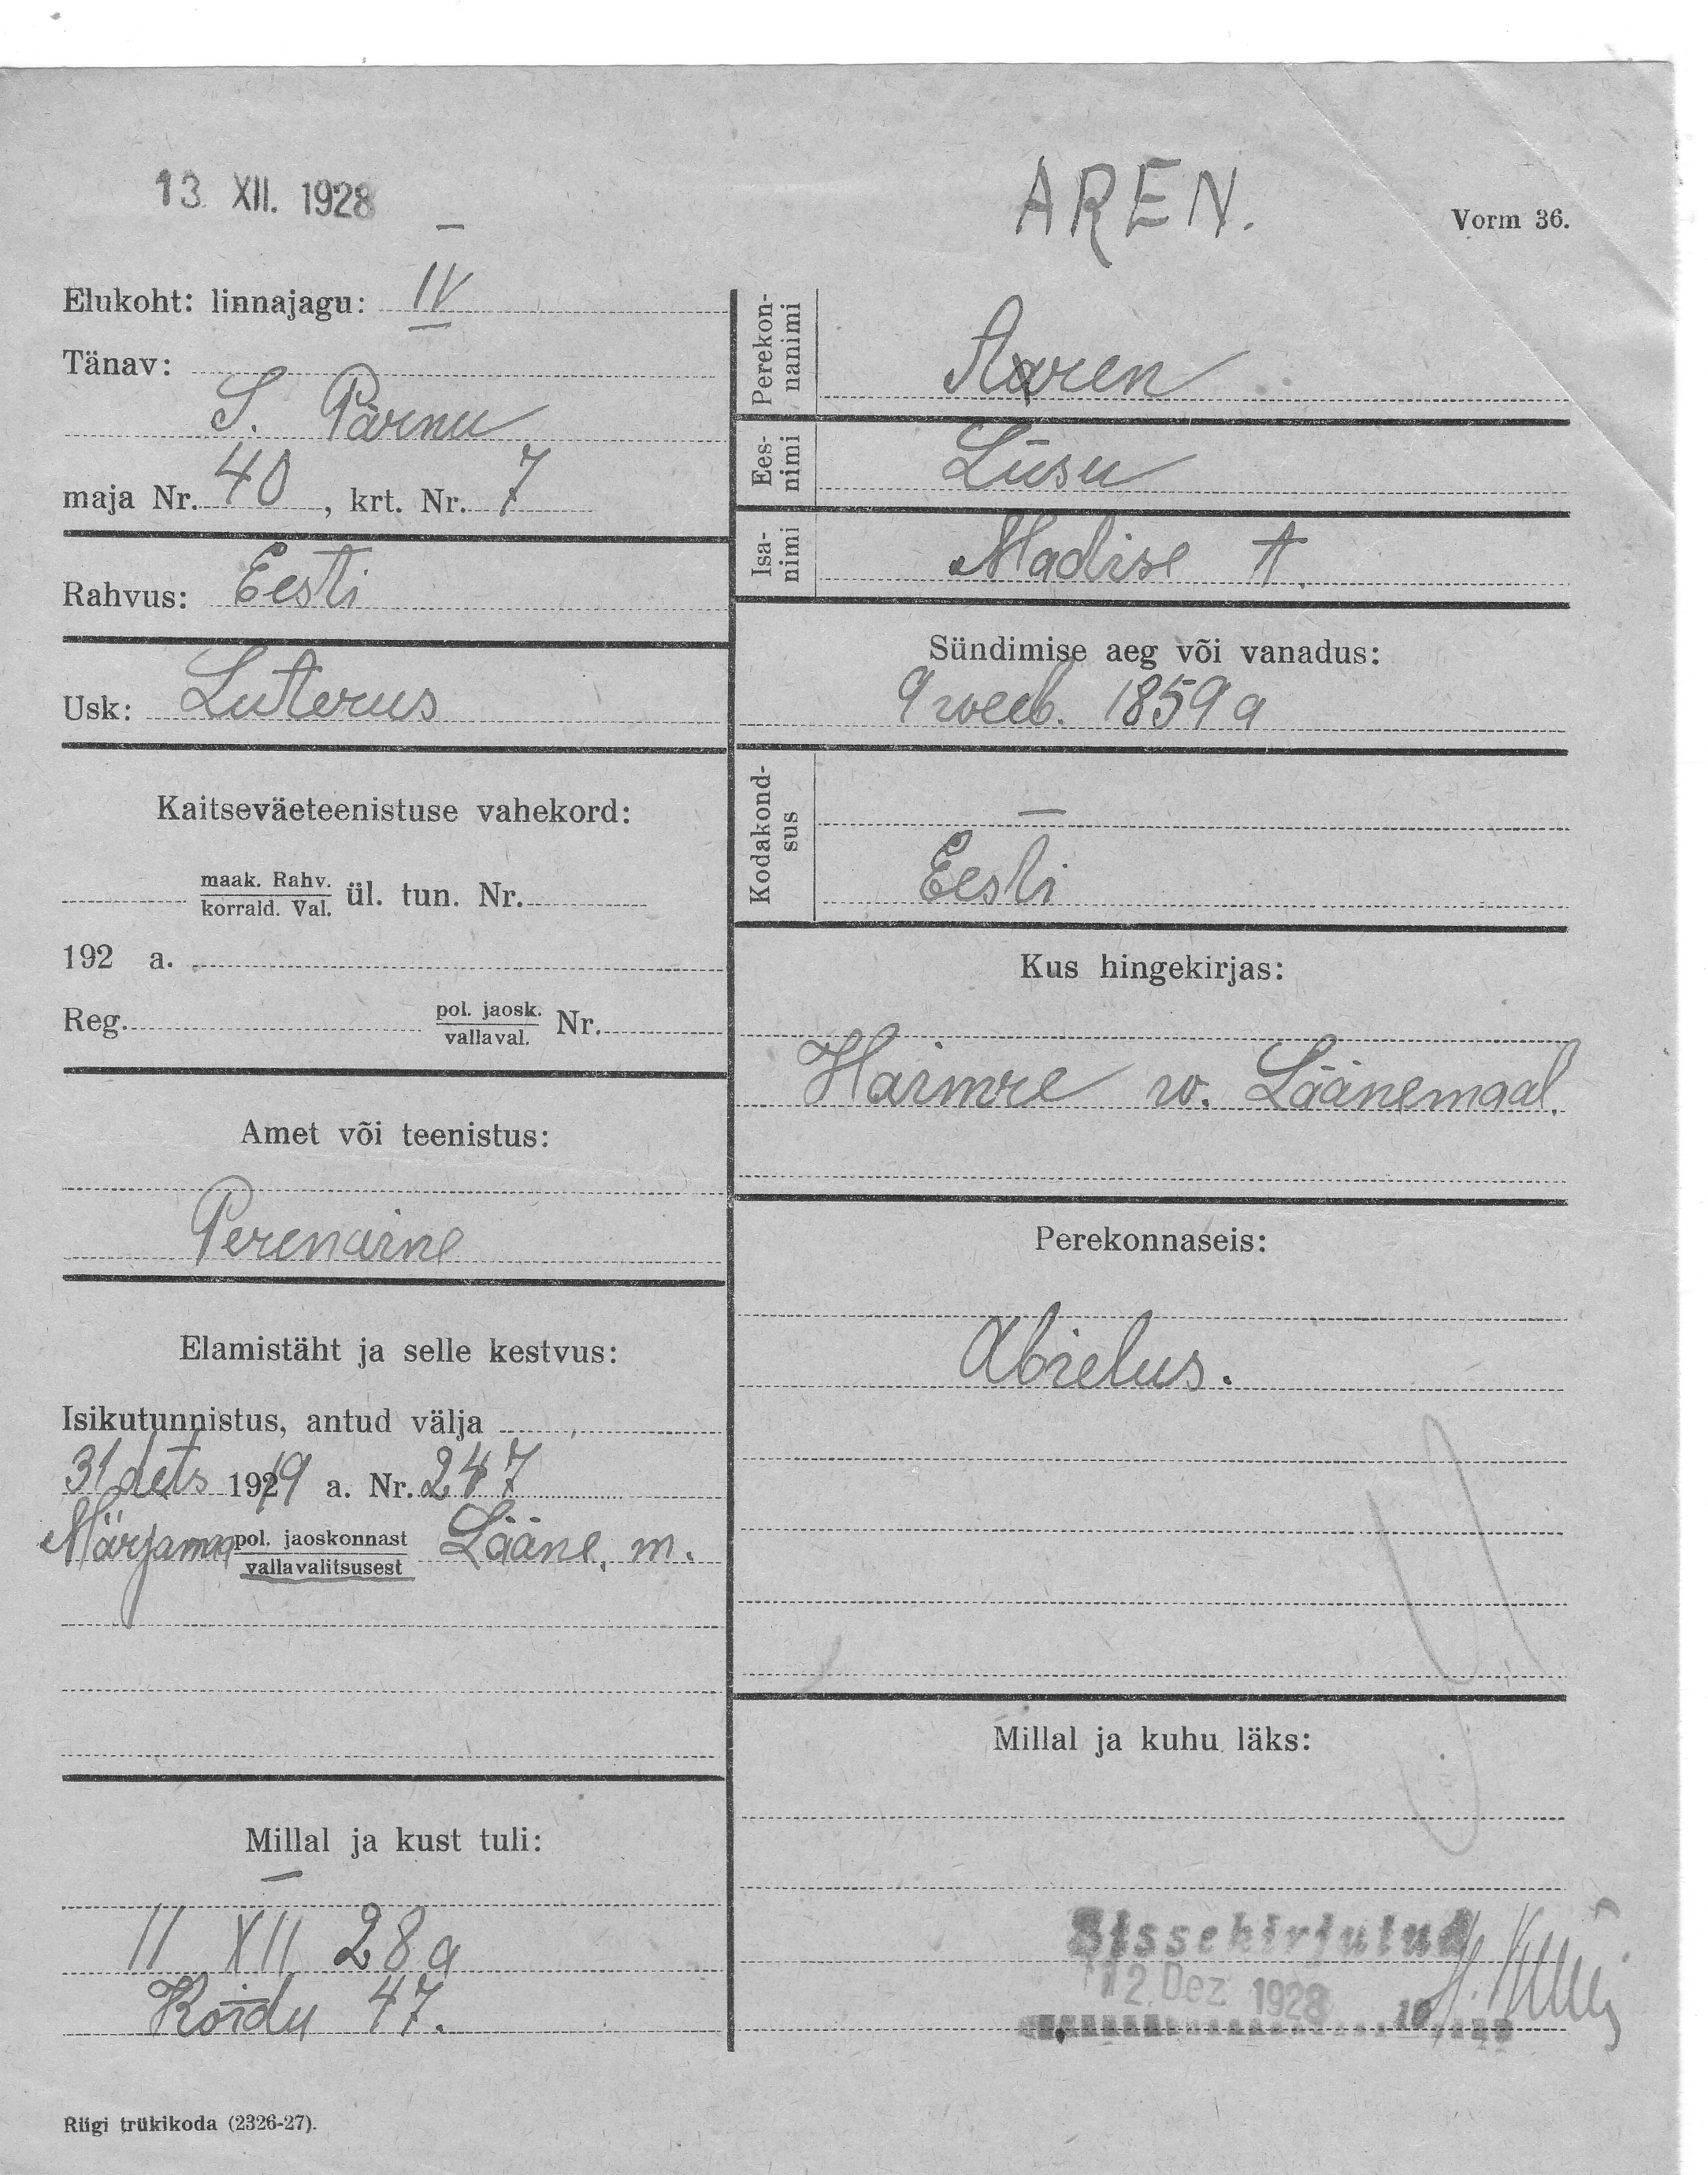 13. XII. 1928
AREN.
Vorm 36.
Elukoht: linnajagu: IV
Tänav:
S. Pärnu
maja Nr. 40, krt. Nr. 7
Rahvus: Eesti
Usk: Luterus
Kaitseväeteenistuse vahekord:
maak. Rahv.
korrald. Val.
ül. tun. Nr.
192 a.
Reg. pol. jaosk.
vallaval.
Nr.
Amet või teenistus:
Perenaine
Elamistäht ja selle kestvus:
Isikutunnistus, antud välja
31 dets 1919 a. Nr. 247
Märjamaa pol. jaoskonnast
vallavalitsusest
Lääne, m.
Millal ja kust tuli:
11 XII 28 a
Koidu 47.
Riigi trükikoda (2326-27).
Perekon-
nanimi
Aaren
Ees-
nimi
Liisu
Isa-
nimi
Madise t.
Sündimise aeg või vanadus:
9 veeb. 1859 a
Kodakond-
sus
Eesti
Kus hingekirjas:
Haimre w. Läänemaal.
Perekonnaseis:
Abielus.
Millal ja kuhu läks:
Sissekirjutud
12. Dez 1928
19